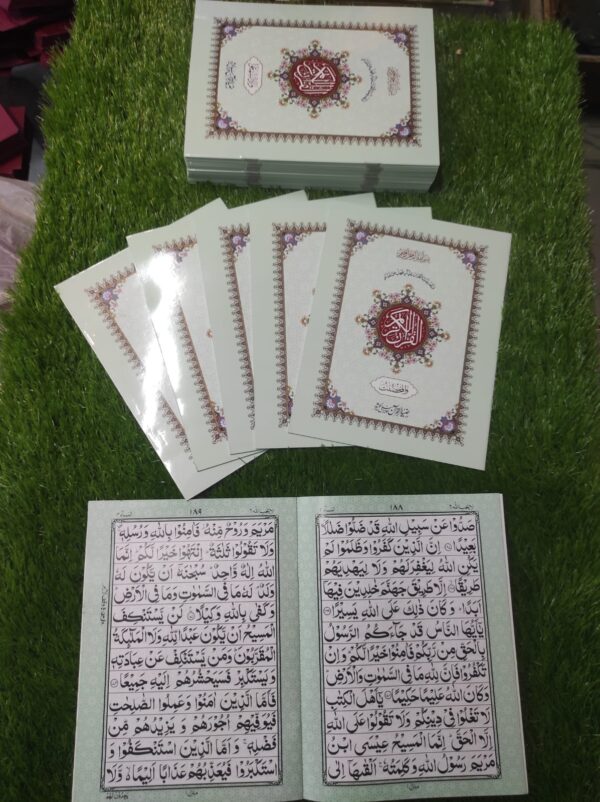 القرآن الكريم
١٨٨
صَدُّوْا عَنْ سَبِيْلِ اللّٰهِ قَدْ ضَلُّوْا ضَلٰلًاۢ
بَعِيْدًا ۝ اِنَّ الَّذِيْنَ كَفَرُوْا وَظَلَمُوْا لَمْ
يَكُنِ اللّٰهُ لِيَغْفِرَ لَهُمْ وَلَا لِيَهْدِيَهُمْ
طَرِيْقًا ۝ اِلَّا طَرِيْقَ جَهَنَّمَ خٰلِدِيْنَ فِيْهَا
اَبَدًا ؕ وَ كَانَ ذٰلِكَ عَلَى اللّٰهِ يَسِيْرًا ۝
يٰۤاَيُّهَا النَّاسُ قَدْ جَآءَكُمُ الرَّسُوْلُ
بِالْحَقِّ مِنْ رَّبِّكُمْ فَاٰمِنُوْا خَيْرًا لَّكُمْ ؕ وَ اِنْ
تَكْفُرُوْا فَاِنَّ لِلّٰهِ مَا فِي السَّمٰوٰتِ وَالْاَرْضِ ؕ
وَ كَانَ اللّٰهُ عَلِيْمًا حَكِيْمًا ۝ يٰۤاَهْلَ الْكِتٰبِ
لَا تَغْلُوْا فِيْ دِيْنِكُمْ وَلَا تَقُوْلُوْا عَلَى اللّٰهِ
اِلَّا الْحَقَّ ؕ اِنَّمَا الْمَسِيْحُ عِيْسَى ابْنُ
مَرْيَمَ رَسُوْلُ اللّٰهِ وَكَلِمَتُهٗ ۚ اَلْقٰىهَاۤ اِلٰى
١٨٩
مَرْيَمَ وَرُوْحٌ مِّنْهُ ؗ فَاٰمِنُوْا بِاللّٰهِ وَرُسُلِهٖ ۚ
وَلَا تَقُوْلُوْا ثَلٰثَةٌ ؕ اِنْتَهُوْا خَيْرًا لَّكُمْ ؕ اِنَّمَا
اللّٰهُ اِلٰهٌ وَّاحِدٌ ؕ سُبْحٰنَهٗۤ اَنْ يَّكُوْنَ لَهٗ
وَلَدٌ ۘ لَهٗ مَا فِي السَّمٰوٰتِ وَمَا فِي الْاَرْضِ ؕ
وَ كَفٰى بِاللّٰهِ وَكِيْلًا ۝ لَنْ يَّسْتَنْكِفَ
الْمَسِيْحُ اَنْ يَّكُوْنَ عَبْدًا لِّلّٰهِ وَلَا الْمَلٰٓئِكَةُ
الْمُقَرَّبُوْنَ ؕ وَمَنْ يَّسْتَنْكِفْ عَنْ عِبَادَتِهٖ
وَيَسْتَكْبِرْ فَسَيَحْشُرُهُمْ اِلَيْهِ جَمِيْعًا ۝
فَاَمَّا الَّذِيْنَ اٰمَنُوْا وَعَمِلُوا الصّٰلِحٰتِ
فَيُوَفِّيْهِمْ اُجُوْرَهُمْ وَ يَزِيْدُهُمْ مِّنْ
فَضْلِهٖ ۚ وَ اَمَّا الَّذِيْنَ اسْتَنْكَفُوْا وَ
اسْتَكْبَرُوْا فَيُعَذِّبُهُمْ عَذَابًا اَلِيْمًا ۙ۬ وَّلَا